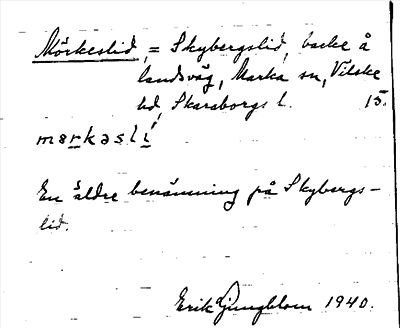 Mörkeslid, = Skybergslid, backe å
landsväg, Marka sn, Vilske
hd, Skaraborgs l. 15.
mørkəslí
En äldre benämning på Skybergs-
lid.
Erik Ljungblom 1940.